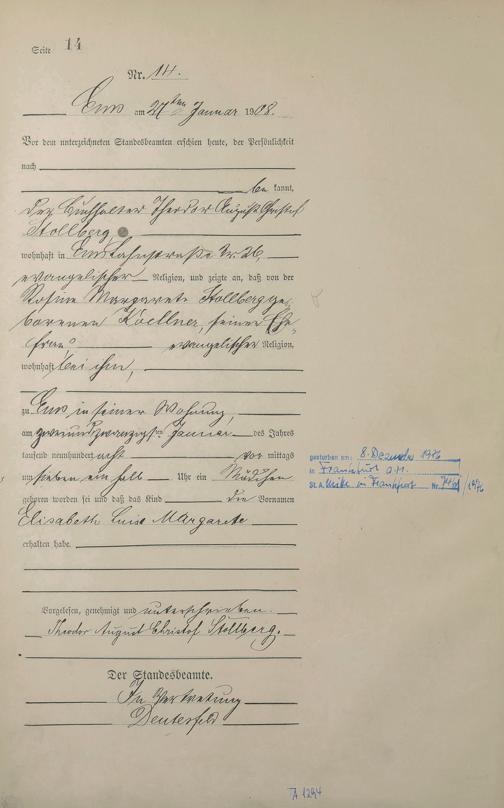 Seite 14
Nr. 14.
Ems am 27ten Januar 1908.
Vor dem unterzeichneten Standesbeamten erschien heute, der Persönlichkeit
nach
be kannt,
der Buchhalter Theodor August Christof
Stollberg,
wohnhaft in Ems Lahnstraße Nr. 26,
evangelischer Religion, und zeigte an, daß von der
Rosine Margarete Stollberg ge-
borenen Koellner, seiner Ehe-
frau, evangelischer Religion,
wohnhaft bei ihm,
zu Ems, in seiner Wohnung,
am zweiundzwanzigsten Januar des Jahres
tausend neunhundert acht vor mittags
um sieben ein halb Uhr ein Mädchen
geboren worden sei und daß das Kind die Vornamen
Elisabeth Luise Margarete
erhalten habe.
Vorgelesen, genehmigt und unterschrieben.
Theodor August Christof Stollberg.
Der Standesbeamte.
In Vertretung
gestorben am: 8. Dezember 1976
in Frankfurt a.M.
St. A. Mitte in Frankfurt Nr. /1976
TA 1294